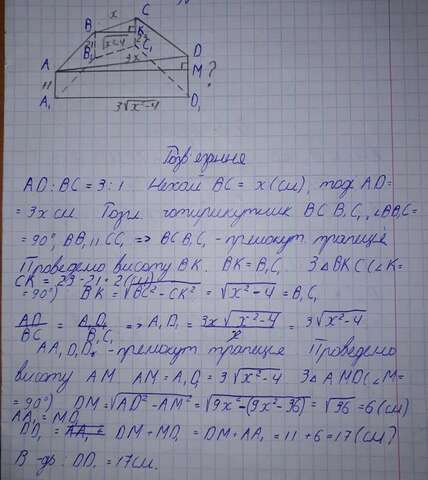 C
x
B
K
√x²-4
B₁
C₁
3x
D
A
M
?
11
A₁
3√x²-4
D₁
Розв'язання
AD:BC = 3:1. Нехай BC = x(см), тоді AD=
= 3x см. Розгл. чотирикутник BCB₁C₁, ∠BB₁C=
= 90°, BB₁ || CC₁ => BCB₁C₁ - прямокут. трапеція
Проведемо висоту BK. BK = B₁C₁ З △BKC (∠K=
CK = 23-21=2(см)
= 90°) BK = √BC² - CK² = √x²-4 = B₁C₁
AD/BC = A₁D₁/B₁C₁ => A₁D₁ = 3x√x²-4/x = 3√x²-4
AA₁D₁D - прямокут. трапеція Проведемо
висоту AM AM = A₁D₁ = 3√x²-4. З △AMD (∠M=
= 90°) DM = √AD² - AM² = √9x²-(9x²-36) = √36 = 6(см)
AA₁ = MD₁
DD₁ = DM + MD₁ = DM + AA₁ = 11 + 6 = 17(см)
В-дь: DD₁ = 17см.